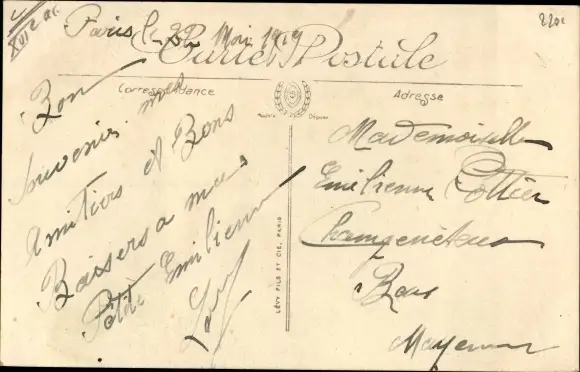 XVII 2 ac
220c
Paris le 22 Mai 1919
Carte Postale
Correspondance
Adresse
Modèle Déposé
Bon
Souvenir mes
Amitiers et Bons
Baisers a ma
Petite Emilienne
LÉVY FILS ET CIE, PARIS
Mademoiselle
Emilienne Cottier
Bais
Mayenne